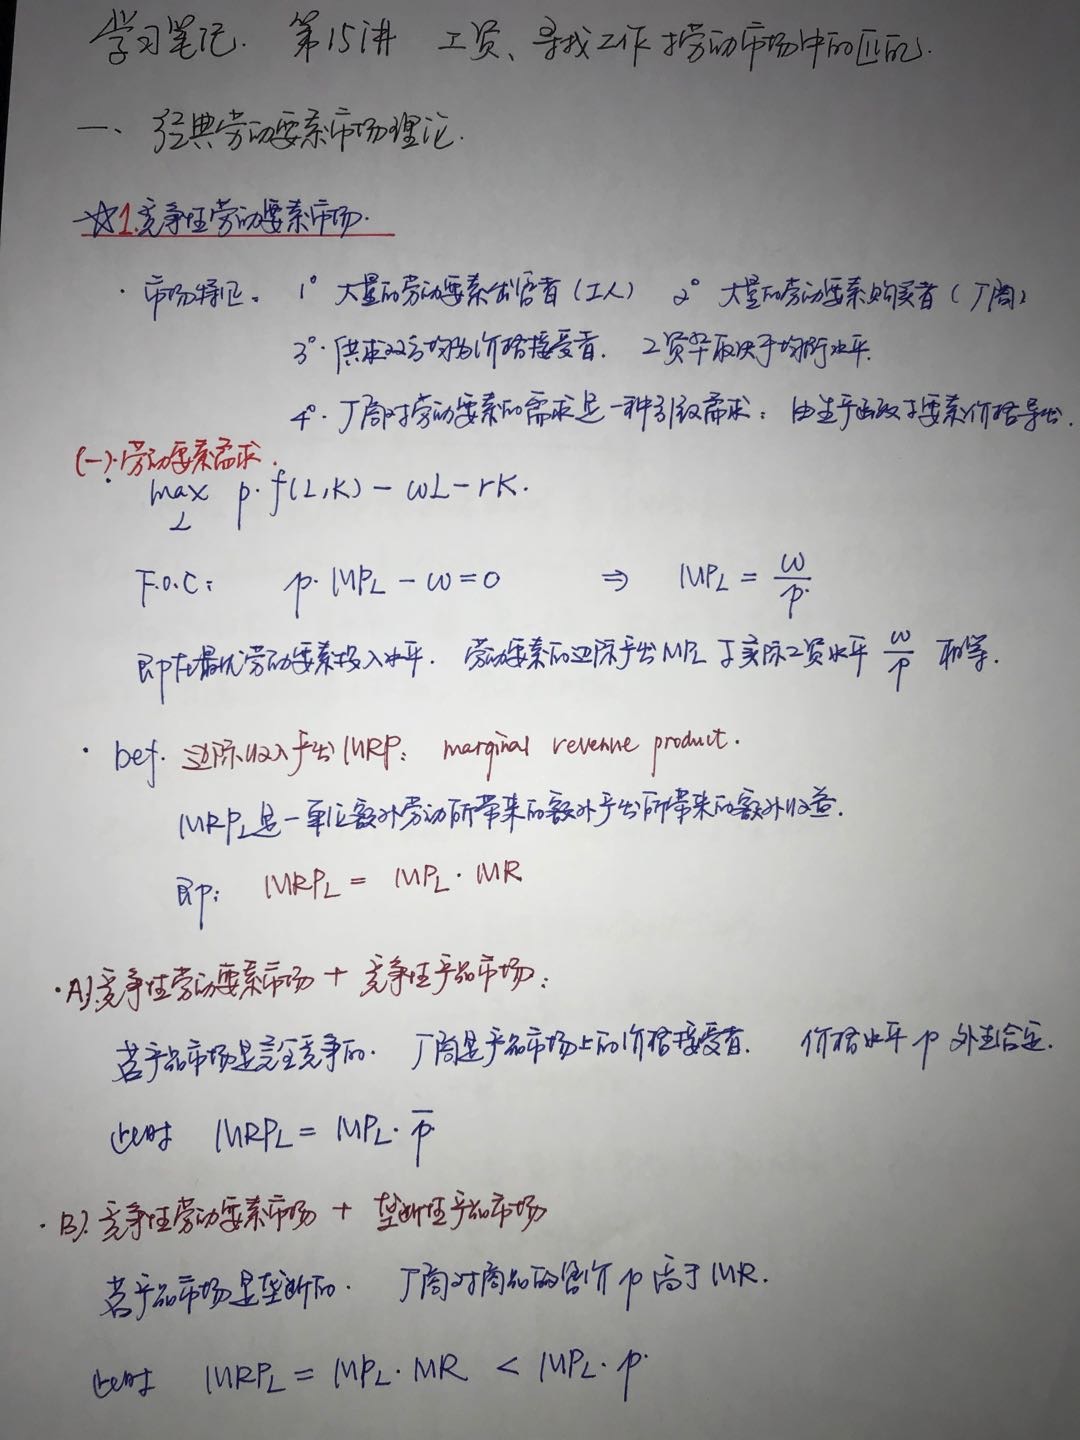 学习笔记. 第15讲 工资、寻找工作与劳动市场中的匹配.
一、经典劳动要素市场理论.
☆1.竞争性劳动要素市场.
· 市场特征: 1° 大量的劳动要素出售者(工人) 2° 大量的劳动要素购买者(厂商)
3°. 供求双方均为价格接受者. 工资率取决于均衡水平.
4°. 厂商对劳动要素的需求是一种引致需求: 由生产函数与要素价格导出.
(一).劳动要素需求.
· max p·f(L,K) - wL - rK.
L
F.O.C: p·MPL - w = 0 ⇒ MPL = w/p.
即在最优劳动要素投入水平. 劳动要素的边际产出MPL与实际工资水平 w/p 相等.
· Def. 边际收入产出MRP: marginal revenue product.
MRPL是一单位额外劳动所带来的额外产出所带来的额外收益.
即: MRPL = MPL · MR
·A).竞争性劳动要素市场 + 竞争性产品市场:
若产品市场是完全竞争的. 厂商是产品市场上的价格接受者. 价格水平 p 外生给定.
此时 MRPL = MPL · p̄.
·B).竞争性劳动要素市场 + 垄断性产品市场
若产品市场是垄断的. 厂商对商品的售价 p 高于 MR.
此时 MRPL = MPL · MR < MPL · p.